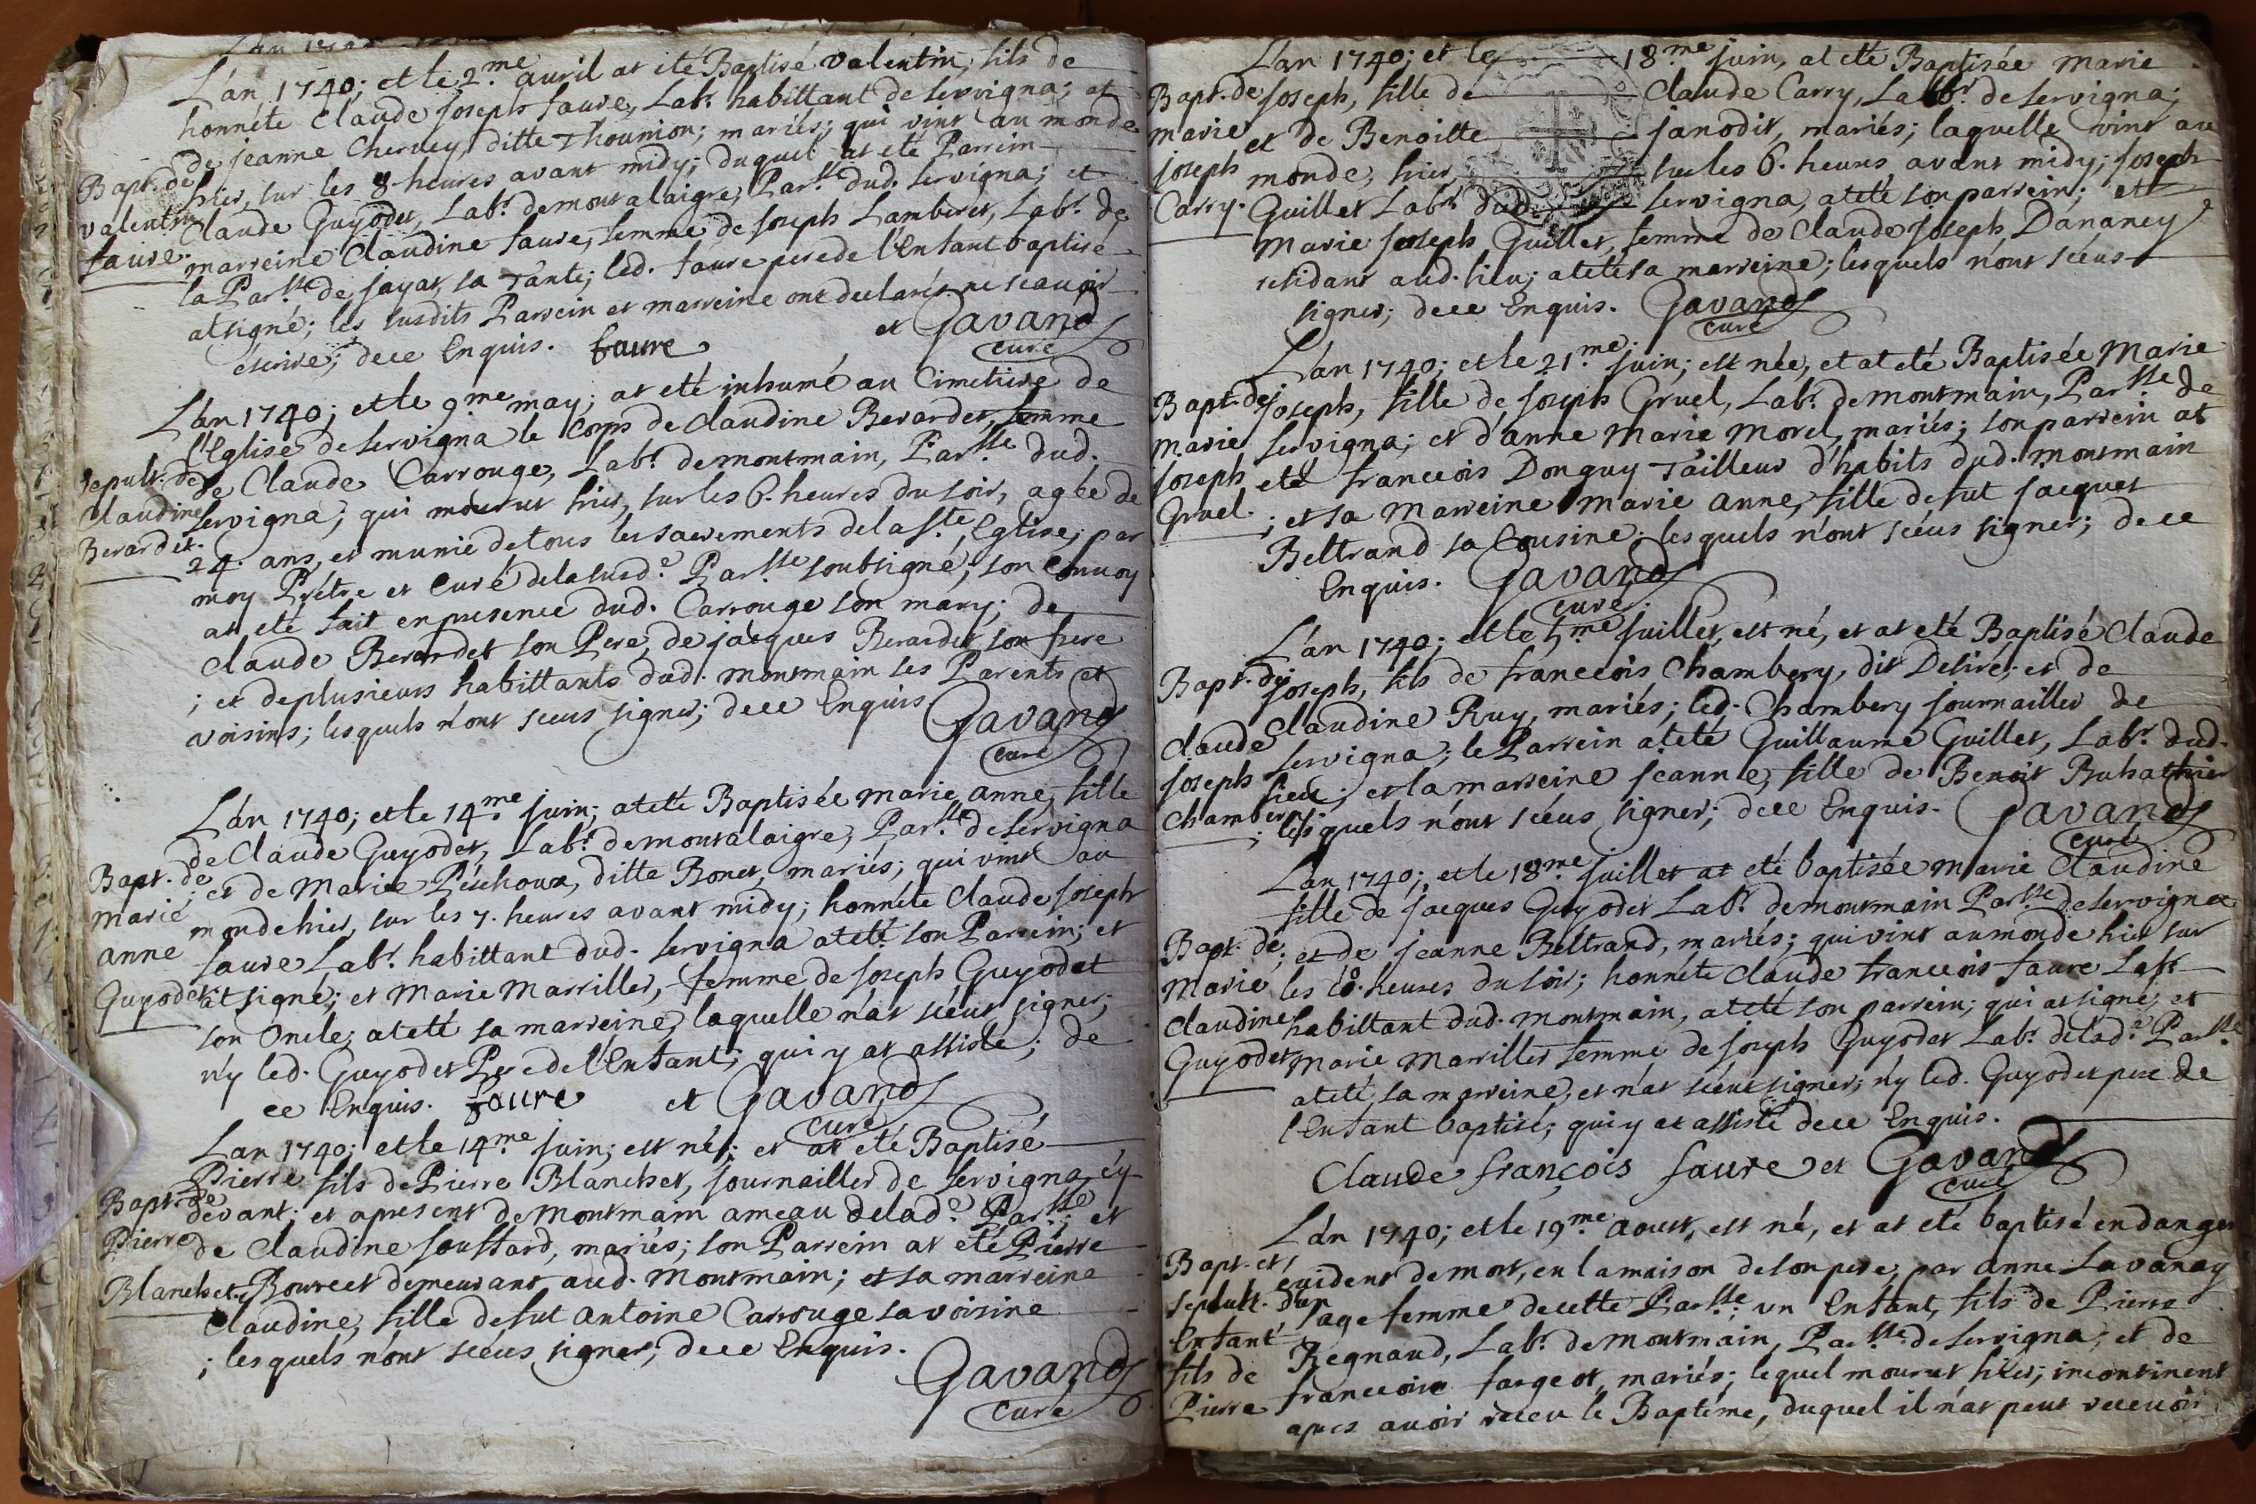 L'an 1740; et le 2.me auril at eté Baptisé valentin, fils de
honnéte Claude Joseph faure, Labr. habittant de servigna; et
de jeanne Chervey, ditte Thounion; mariés; qui vint au monde
Bapt. de hier, sur les 8 heures avant midy; duquel at eté Parrein
valentin Claude Guyodet, Labr. demontalaigre, Par.sse dud. servigna; et
faure. marreine Claudine faure, femme de Joseph Lamberet, Labr. de
la Par.sse de jayat, sa Tante; led. faure pere de l'Enfant baptisé
at signé; les susdits Parrein et marreine ont declarés ne scauoir
escrire; dece Enquis. faure et Gavand
curé
L'an 1740; et le 9.me may; at eté inhumé au Cimetiere de
l'Eglise de servigna le Corps de Claudine Berardet, femme
Sepult. de de Claude Carrouge, Labr. demontmain, Par.sse dud.
Claudine servigna; qui mourut hier, sur les 6. heures du soir, agée de
Berardet. 24. ans, et munie de tous les sacrements de la S.te Eglise; par
moy Prétre et Curé dela susd.e Par.sse soubsigné; son Convoy
at eté fait en presence dud. Carrouge son mary; de
Claude Berardet son Pere, de jacques Berardet son frere
; et de plusieurs habittants dud. montmain ses Parents et
voisins; lesquels n'ont sceus signer; dece Enquis Gavand
curé
L'an 1740; et le 14.me juin; at eté Baptisée marie anne, fille
de Claude Guyodet, Labr. demontalaigre, Par.sse de servigna
Bapt. de ; et de Marie Péschoux, ditte Bonet, mariés; qui vint au
marie monde hier, sur les 7. heures avant midy; honnéte Claude Joseph
anne faure Labr. habittant dud. servigna at eté son Parrein; et
Guyodet. at signé; et Marie Marrillet, femme de Joseph Guyodet
son Oncle; at eté sa marreine, laquelle n'at sceut signer;
n'y led. Guyodet Pere de l'Enfant; qui y at assisté; de
ce Enquis. faure et Gavand
curé
L'an 1740; et le 14.me juin; est né; et at eté Baptisé
Pierre fils de Pierre Blanchet, journaillier de servigna cy
Bapt. de devant; et apresent de Montmain ameau delad.e Par.sse; et
Pierre de Claudine soustard, mariés; son Parrein at eté Pierre
Blanchet. Bourcet demeurant aud. Montmain; et sa marreine
Claudine, fille de fut Antoine Carrouge sa voisine
; lesquels n'ont scéus signer, dece Enquis.
Gavand
curé
L'an 1740; et le 18.me juin, at eté Baptisée marie
Bapt. de Joseph, fille de Claude Carry, Labr. de servigna;
marie et de Benoitte janodit, mariés; laquelle vint au
joseph monde, hier sur les 6. heures avant midy; Joseph
Carry. Guillet Labr. dud. servigna, at eté son parrein; et
Marie Joseph Guillet, femme de Claude Joseph Dananey
residant aud. lieu; at eté sa marreine; lesquels n'ont scéus
signer; dece Enquis. Gavand
curé
L'an 1740; et le 21.me juin; est née, et at eté Baptisée Marie
Bapt. de Joseph, fille de Joseph Gruel, Labr. demontmain, Par.sse de
marie servigna; et d'anne Marie Morel, mariés; son parrein at
joseph eté francois Donguy Tailleur d'habits dud. montmain
Gruel. ; et sa marreine Marie anne, fille de fut Jacques
Beltrand sa Cousine; lesquels n'ont scéus signer; dece
Enquis. Gavand
curé
L'an 1740; et le 5.me juillet, est né, et at eté Baptisé Claude
Bapt. de Joseph, fils de francois Chambery, dit Desiré; et de
Claude Claudine Ruy, mariés; led. Chambery journaillier de
joseph servigna; le Parrein at eté Guillaume Guillet, Labr. dud.
Chambery lieu; et la marreine jeanne, fille de Benoit Buhathier
; lesquels n'ont scéus signer; dece Enquis. Gavand
curé
L'an 1740; et le 18.me juillet at eté baptisée Marie Claudine
fille de jacques Guyodet Labr. demontmain Par.sse de servigna
Bapt. de ; et de jeanne Beltrand, mariés; qui vint au monde hier sur
Marie les 10. heures du soir; honnéte Claude francois faure Labr
Claudine habittant dud. montmain, at eté son parrein; qui at signé; et
Guyodet Marie Marrillet femme de Joseph Guyodet Labr. delad.e Par.sse
at eté sa marreine, et n'at scéut signer; n'y led. Guyodet pere de
l'Enfant baptisé; qui y at assisté dece Enquis.
Claude françois faure et Gavand
curé
L'an 1740; et le 19.me aoust, est né, et at eté baptisé en danger
Bapt. et euident de mort, en la maison de son pere, par anne Lavanay
sepult. d'un sage femme decette Par.sse un Enfant, fils de Pierre
Enfant Regnaud, Labr. demontmain, Par.sse de servigna; et de
fils de francoise fargeot, mariés; lequel mourut hier; incontinent
Pierre apres avoir receu le Baptéme, duquel il n'at peut recevoir